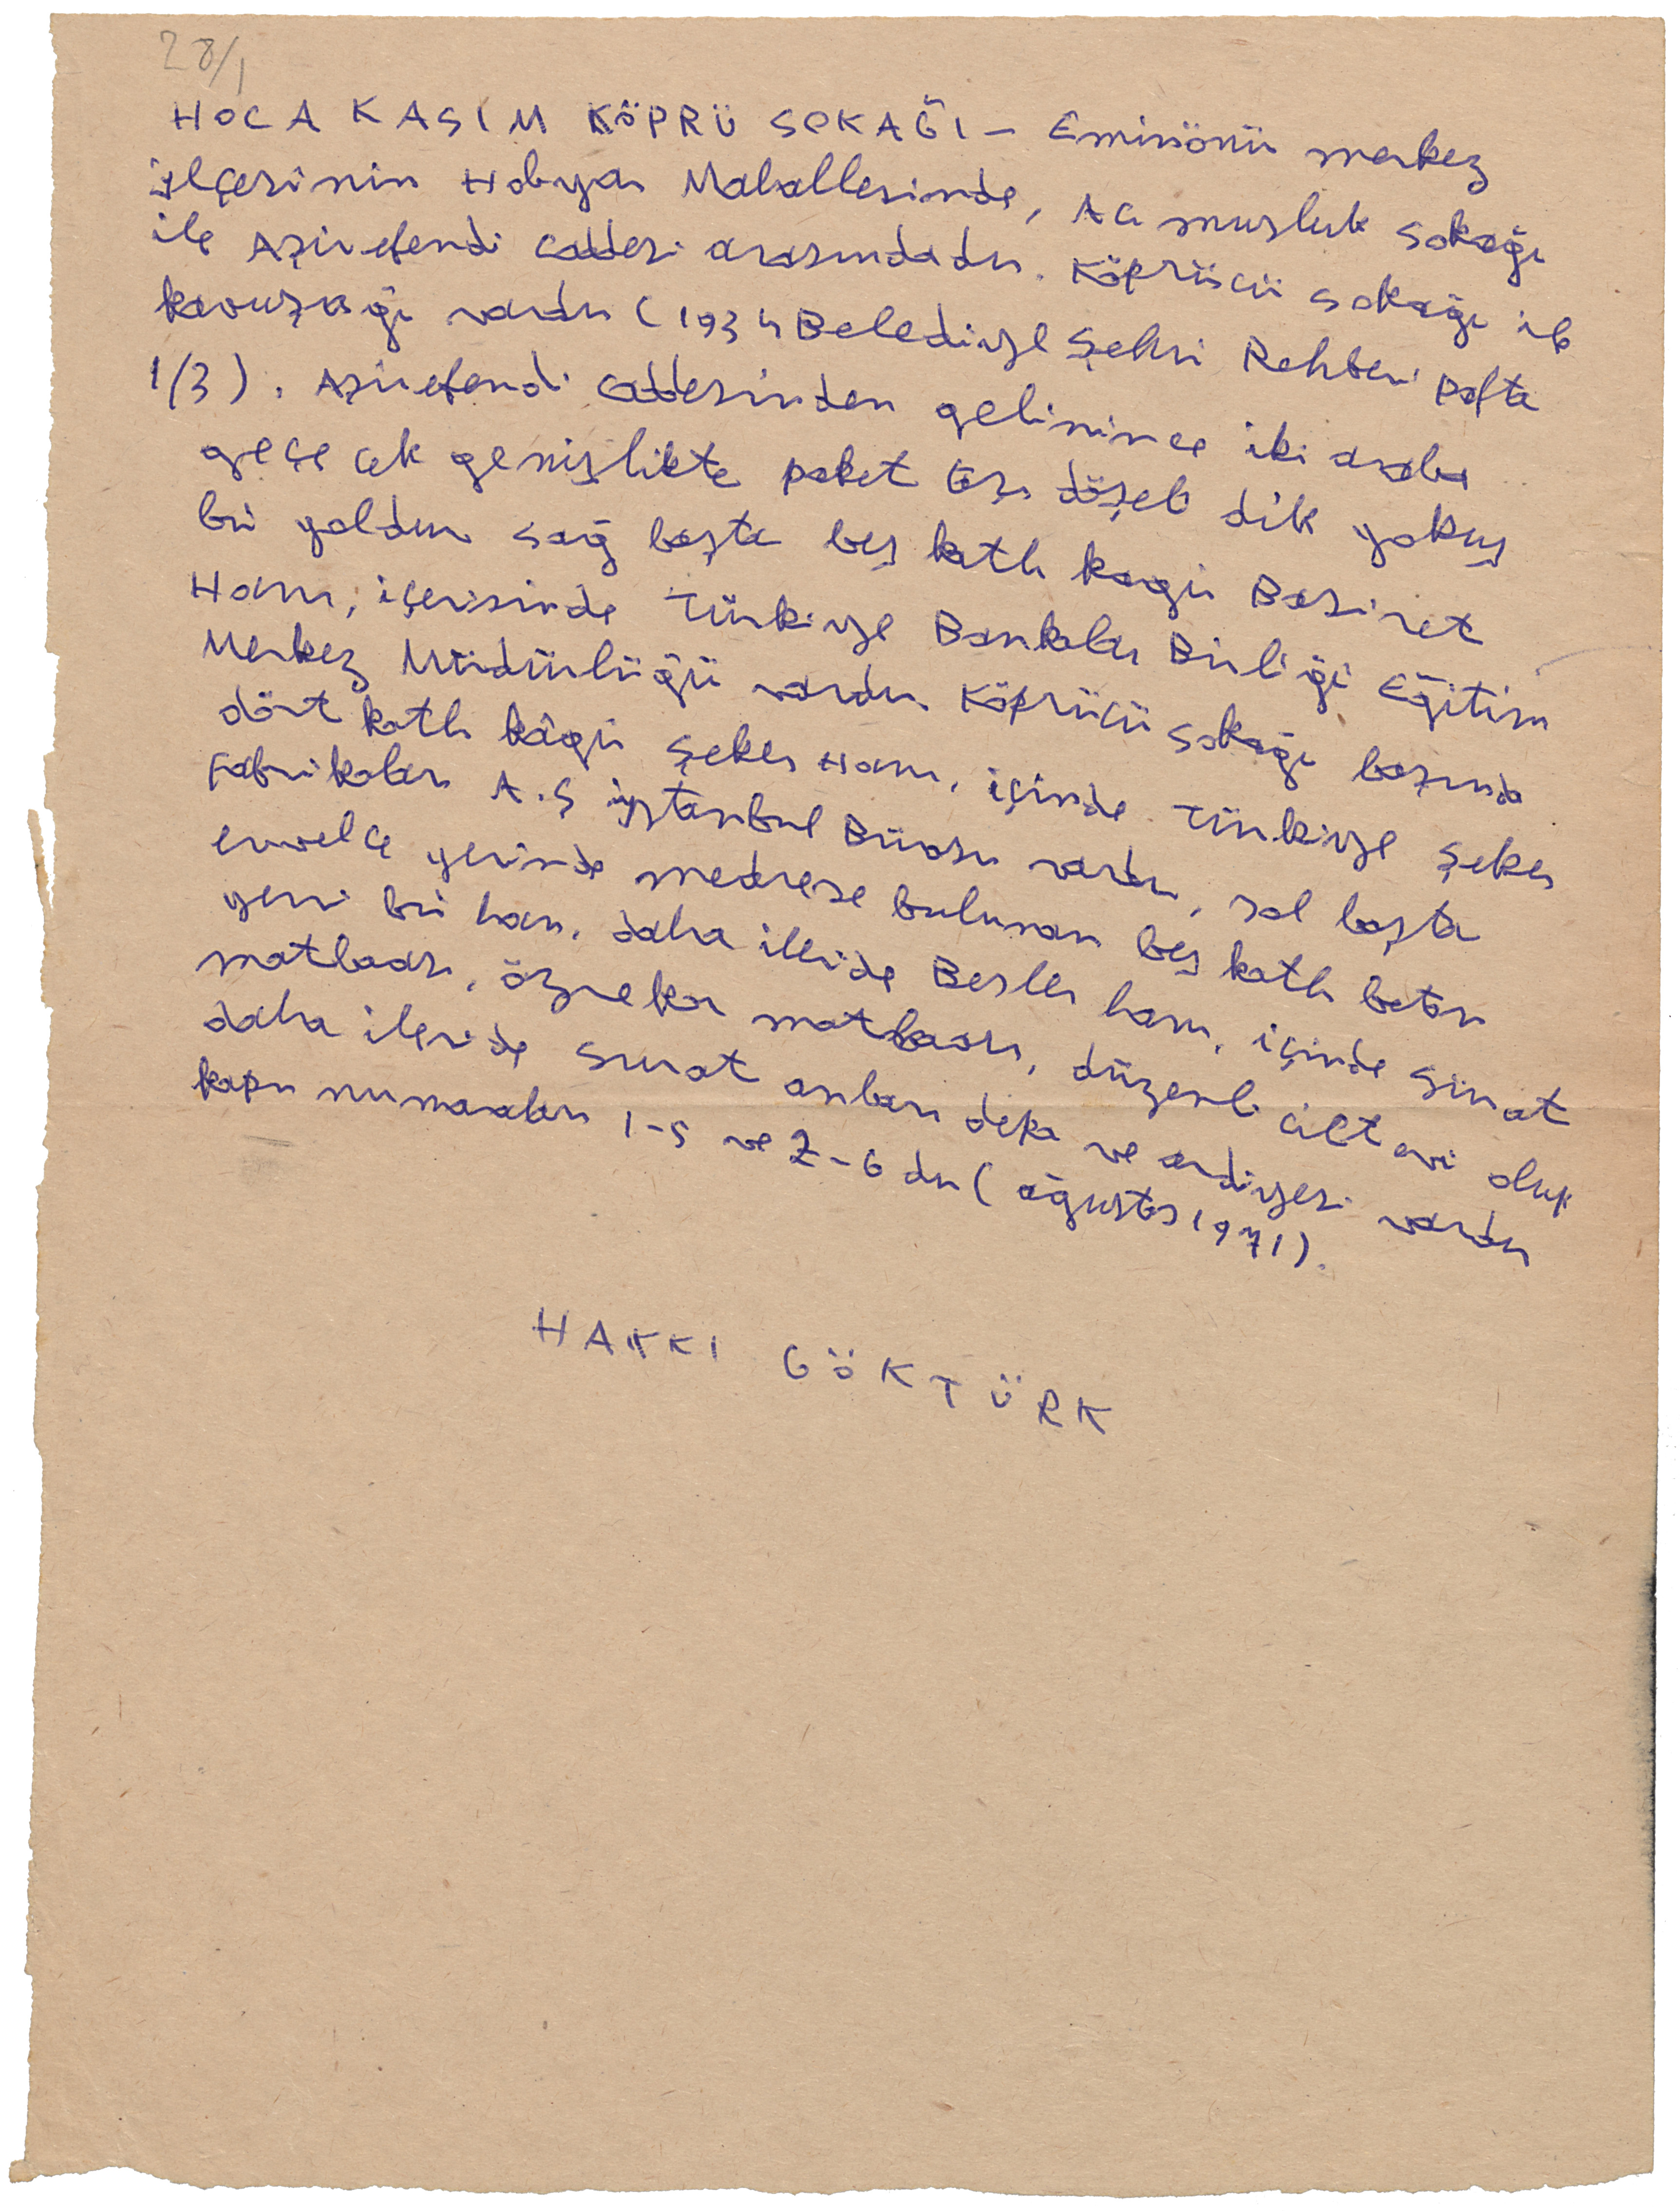 28/1
HOCA KASIM KÖPRÜ SOKAĞI - Eminönü merkez
ilçesinin Hobyar Mahallesinde, Acı musluk sokağı
ile Aşirefendi caddesi arasındadır. Köprücü sokağı ile
kavuşağı vardır (1934 Belediye Şehir Rehberi pafta
1/3). Aşirefendi caddesinden gelinince iki araba
geçecek genişlikte paket taşı döşeli dik yokuş
bir yoldur sağ başta beş katlı kagir Basiret
Hanı, içerisinde Türkiye Bankalar Birliği Eğitim
Merkez Müdürlüğü vardır Köprücü sokağı başında
dört katlı kâgir Şeker Hanı, içinde Türkiye Şeker
Fabrikaları A.Ş İstanbul Bürosu vardır, sol başta
evvelce yerinde medrese bulunan beş katlı beton
yeni bir han, daha ileride Besler hanı, içinde Sinat
matbaası, özyeka matbaası, düzenli cilt evi olup
daha ileride surat anbarı depo ve ardiyesi vardır
kapu numaraları 1-5 ve 2-6 dır (ağustos 1971).
HAKKI GÖKTÜRK